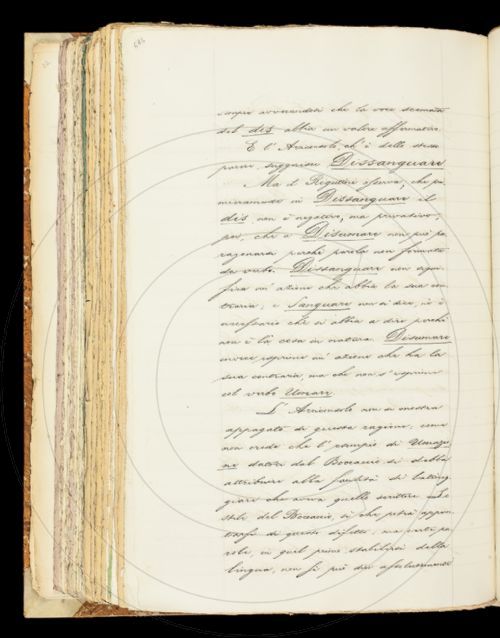 sempre avvicinatosi che la voce scemata
del dis abbia un valore affermativo.
E l'Arciconsolo, ch'è dello stesso
parere, suggerisce Dissanguare
Ma il Rigutini osserva, che pri-
mieramente in Dissanguare il
dis non è negativo, ma privativo;
poi, che a Disumare non può pa-
ragonarsi perchè parola non formata
da verbo. Dissanguare non signi-
fica un'azione che abbia la sua con-
traria, e Sanguare non si dice, nè è
necessario che si abbia a dire perchè
non è la cosa in natura. Disumare
invece esprime un'azione che ha la
sua contraria, ma che non s'esprime
col verbo Umare.
L'Arciconsolo non si mostra
appagato di queste ragioni: come
non crede che l'esempio di Umazio-
ne datoci dal Boccaccio si debba
attribuire alla facilità di lating-
giare che aveva quello scrittore
stile del Boccaccio, si che potrà appun-
tarsi di questo difetto; ma certe pa-
role, in quel primo stabilirsi della
lingua, non si può dire assolutamente